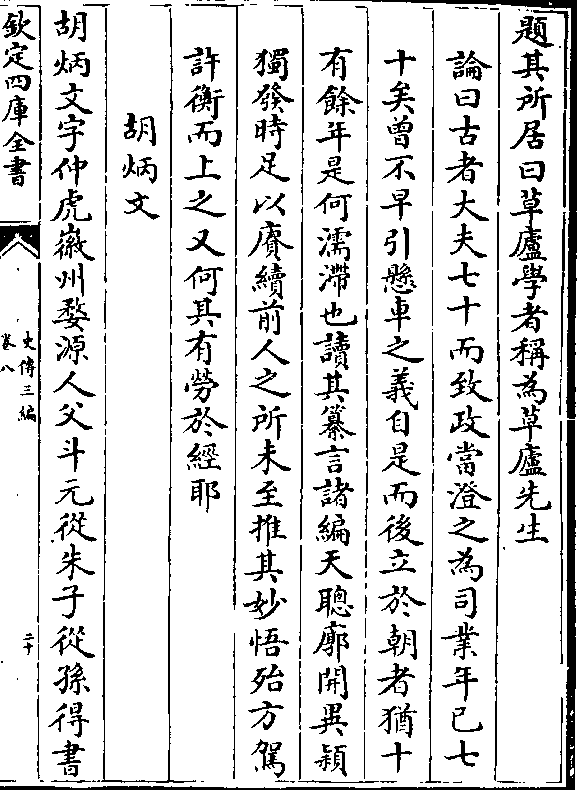 題其所居曰草廬學者稱為草廬先生
論曰古者大夫七十而致政當澄之為司業年已七
十矣曾不早引懸車之義自是而後立於朝者猶十
有餘年是何濡滯也讀其纂言諸編天聰廓開異穎
獨發時足以賡續前人之所未至推其妙悟殆方駕
許衡而上之又何其有勞於經耶
胡炳文
胡炳文字仲虎徽州婺源人父斗元從朱子從孫得書
欽定四庫全書
史傳三編
卷八
二十